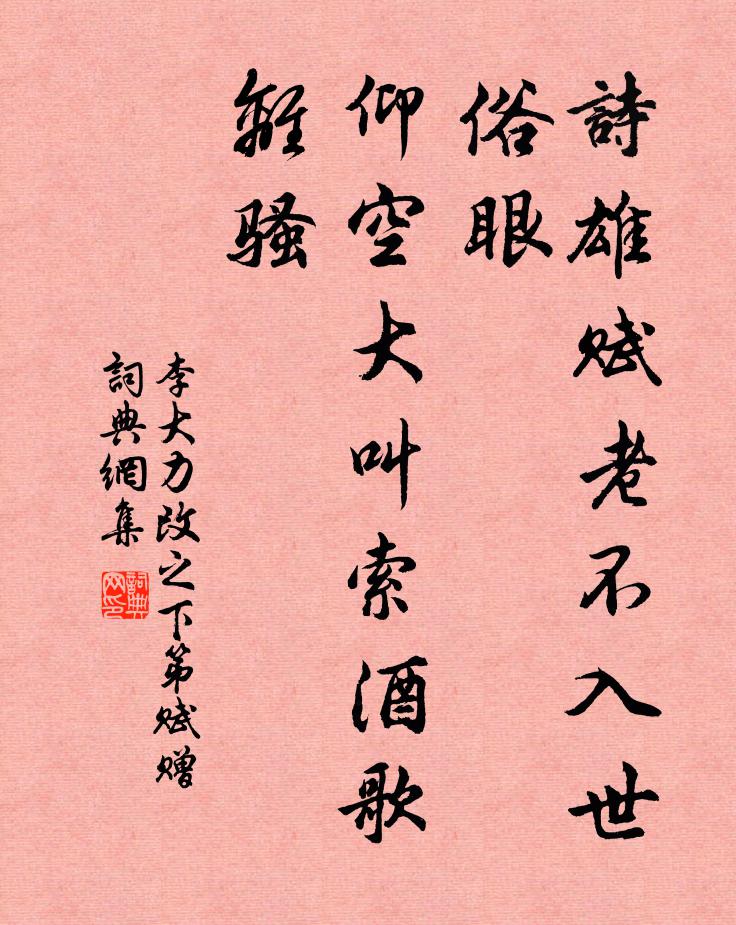 詩雄賦老不入世
俗眼
仰空大叫索酒歌
離騷
李大力改之下第賦贈
詞典網集
詞典網印